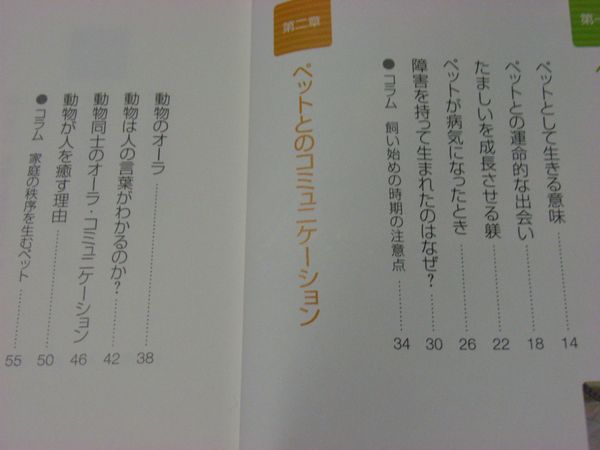 第一
ペットとして生きる意味 14
ペットとの運命的な出会い 18
たましいを成長させる躾 22
ペットが病気になったとき 26
障害を持って生まれたのはなぜ? 30
●コラム 飼い始めの時期の注意点 34
第二章
ペットとのコミュニケーション
動物のオーラ 38
動物は人の言葉がわかるのか? 42
動物同士のオーラ・コミュニケーション 46
動物が人を癒す理由 50
●コラム 家庭の秩序を生むペット 55